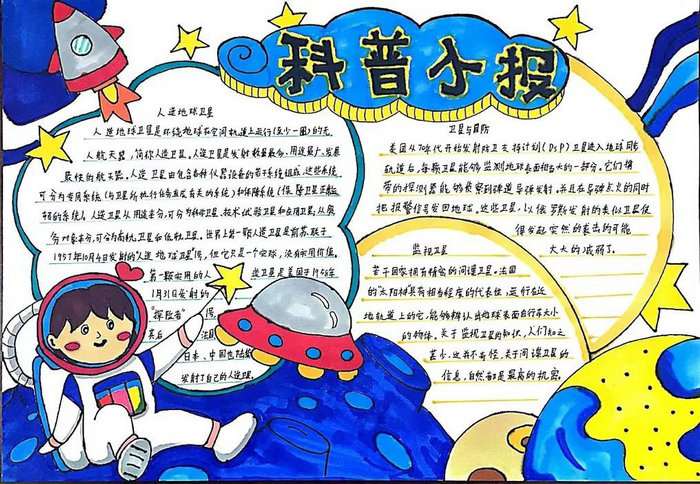 科普小报
人造地球卫星
人造地球卫星是环绕地球在空间轨道上运行(至少一圈)的无
人航天器,简称人造卫星。人造卫星是发射数量最多、用途最广、发展
最快的航天器。人造卫星由包含各种仪器设备的若干系统组成,这些系统
可分为专用系统(与卫星所执行任务直接有关的系统)和保障系统(保障卫星
的系统)。人造卫星从用途来分,可分为科学卫星、技术试验卫星和应用卫星,从
对象来分,可分为高轨卫星和低轨卫星。世界上第一颗人造卫星是前苏联于
1957年10月4日发射的"人造地球卫星",但它只是一个空球,没有实用价值。
第一颗实用的人
造卫星是美国于1958年
1月31日发射的
"探险者"
其后
法国
日本、中国也陆续
发射了自己的人造卫星
卫星与国防
美国从70年代开始发射防卫支持计划(DSP)卫星进入地球同步
轨道后,每颗卫星能够监测地球表面相当大的一部分。它们携
带的探测器能够觉察到弹道导弹发射,并且在导弹点火的同时
把报警信号发回地球。这些卫星,以俄罗斯发射的类似卫星使
得发起突然的袭击的可能
大大的减弱了。
监视卫星
若干国家拥有精密的间谍卫星。法国
的"太阳神"具有相当程度的代表性,运行在近
地轨道上的它,能够辨认出地球表面自行车大小
的物体。关于监视卫星的知识,人们知之
甚少,这并不奇怪,关于间谍卫星的
信息,自然都是最高的机密。